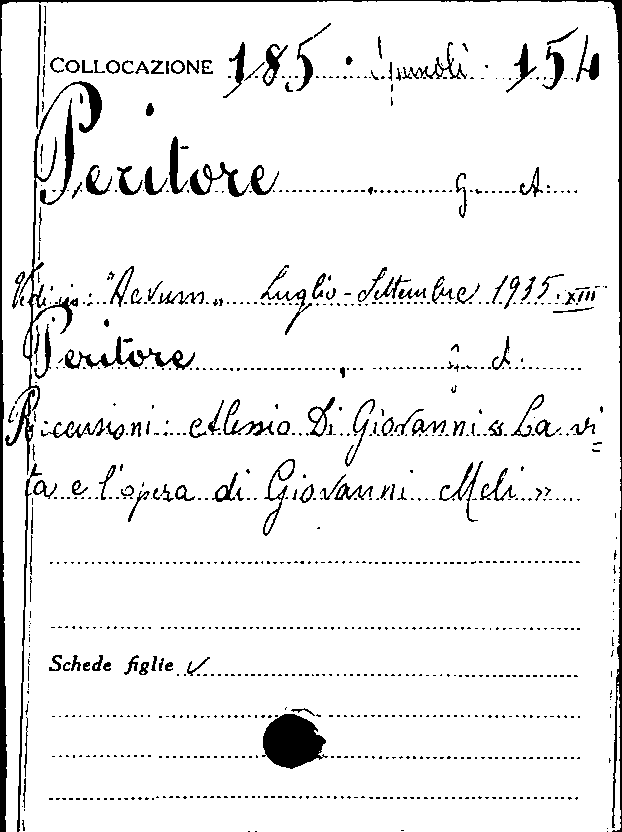 COLLOCAZIONE 185 · · 154
Peritore, G. A.
Vedi in: "Aevum„ Luglio-Settembre 1935. XIII
Peritore, G. A.
Recensioni: Alessio Di Giovanni « La vi=
ta e l'opera di Giovanni Meli »
Schede figlie ✓